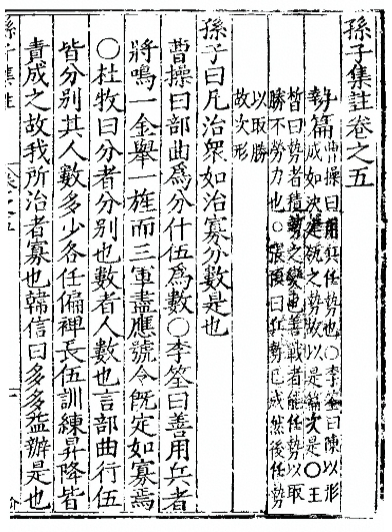 孫子集註卷之五
勢篇
曹操曰用兵任勢也○李筌曰陳以形
成如決建瓴之勢故以是篇次是○王
晳曰勢者積勢之變也善戰者能任勢以取
勝不勞力也○張預曰兵勢已成然後任勢
以取勝
故次形
孫子曰凡治衆如治寡分數是也
曹操曰部曲爲分什伍爲數○李筌曰善用兵者
將鳴一金舉一旌而三軍盡應號令旣定如寡焉
○杜牧曰分者分別也數者人數也言部曲行伍
皆分別其人數多少各任偏裨長伍訓練昇降皆
責成之故我所治者寡也韓信曰多多益辦是也